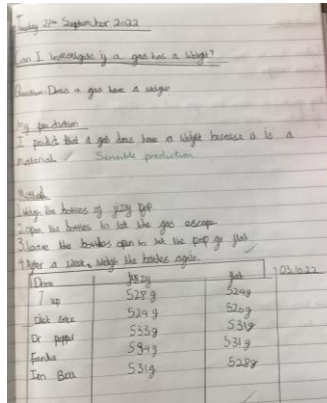 Tuesday 27th September 2022
Can I investigate if a gas has a weight?
Question: Does a gas have a weight
My prediction
I predict that a gas does have a weight because it is a
material ✓ Sensible prediction
Method
1 Weigh the bottles of fizzy pop
2 open the bottles to let the gas escape
3 leave the bottles open to let the pop go flat
4 After a week, weigh the bottles again.
fizzy flat 03.10.22
7 up 528g 524g
Diet Coke 524g 520g
Dr pepper 535g 531g
531g
Iron Bru 531g 528g